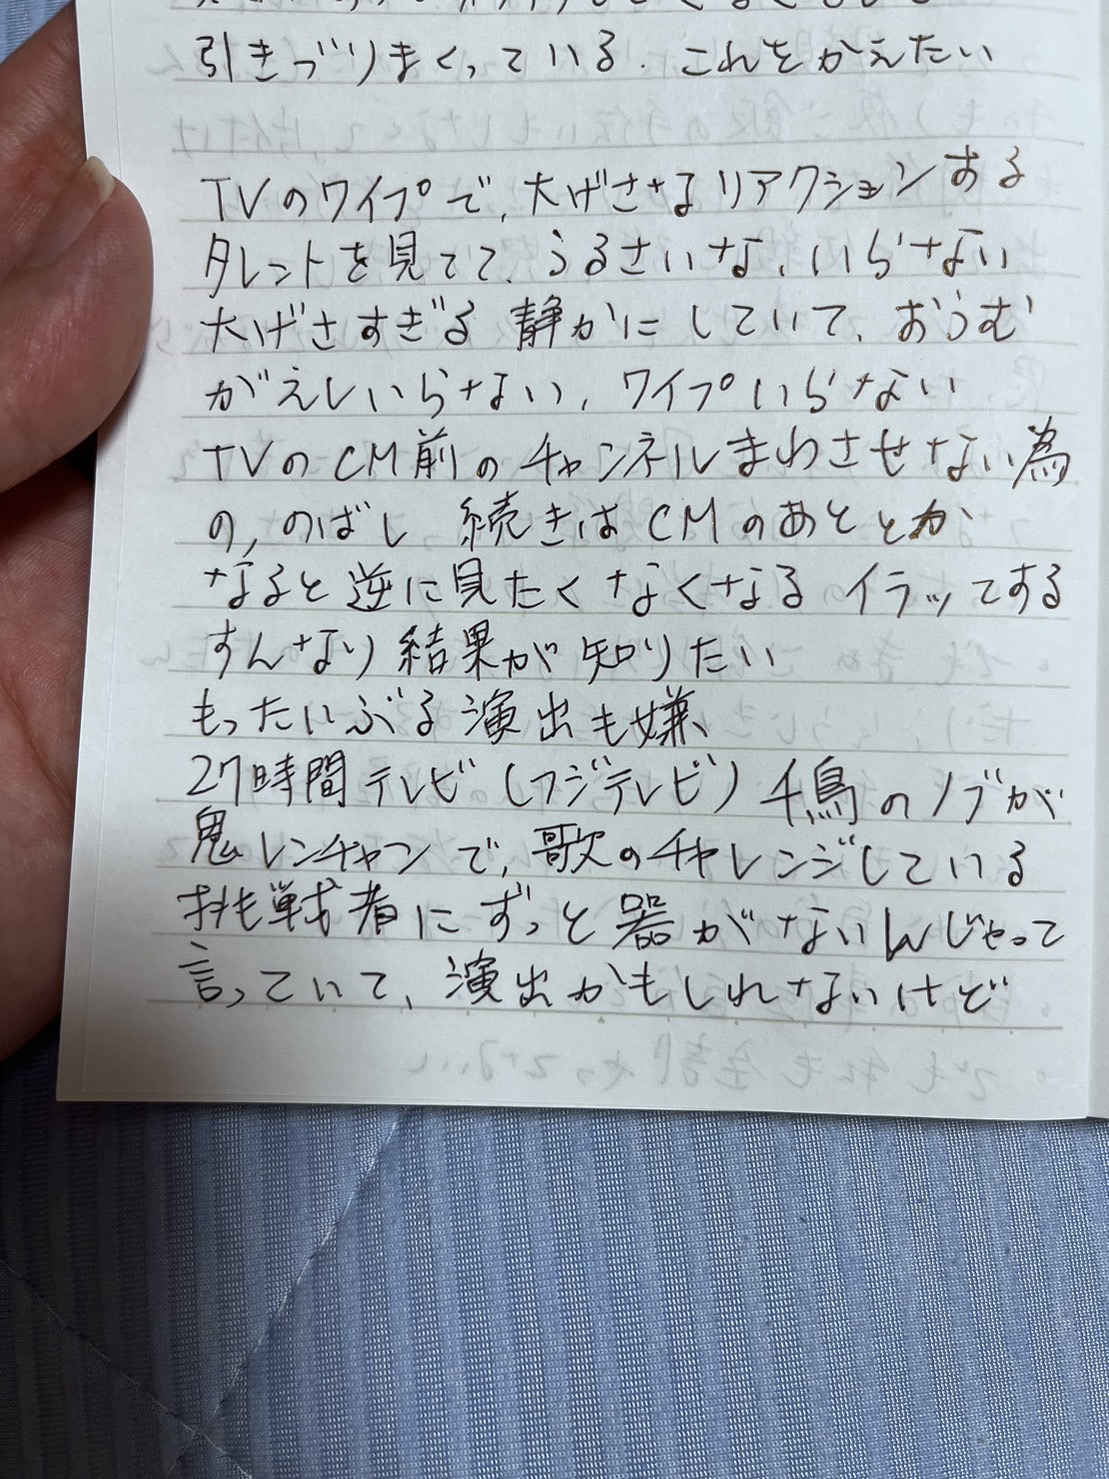 引きづりまくっている. これをかえたい
TVのワイプで、大げさなリアクションする
タレントを見てて、うるさいな、いらない
大げさすぎる 静かにしていて、おうむ
がえしいらない、ワイプいらない
TVのCM前のチャンネルまわさせない為
の、のばし 続きはCMのあととか
なると逆に見たくなくなる イラッてする
すんなり結果が知りたい
もったいぶる演出も嫌
27時間テレビ(フジテレビ)千鳥のノブが
鬼レンチャンで、歌のチャレンジしている
挑戦者にずっと器がないんじゃって
言っていて、演出かもしれないけど